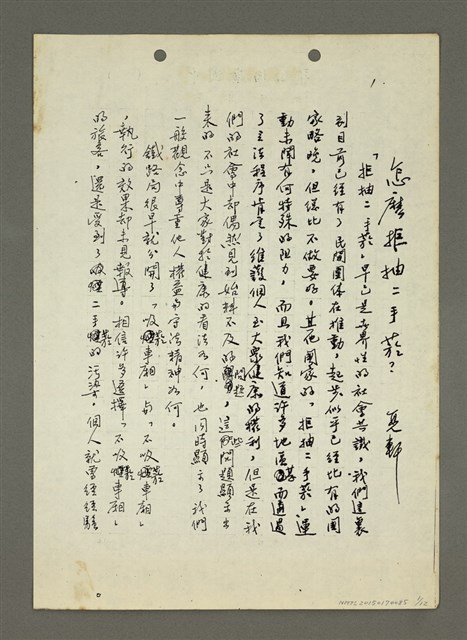 1.
怎麼拒抽二手菸？ 亮軒
「拒抽二手菸」早已是世界性的社會共識，我們這裏
到目前已經有了民間團體在推動，起步似乎已經比有的國
家略晚，但總比不做要好。其他國家的「拒抽二手菸」運
動未聞有何特殊的阻力，而且我們知道許多地區甚而通過
了立法程序肯定了維護個人至大眾健康的權利，但是在我
們的社會中卻偶然見到始料不及的問題，這些問題顯示出
來的不只是大家對於健康的看法如何，也同時顯示了我們
一般觀念中尊重他人權益與守法精神如何。
鐵路局很早就公開了「吸菸車廂」與「不吸菸車廂」
，執行的效果卻未見報導。相信許多選擇「不吸菸車廂」
的旅客，還是受到了吸二手菸的污染。個人就曾經經驗
NMTL20150170085 1/12